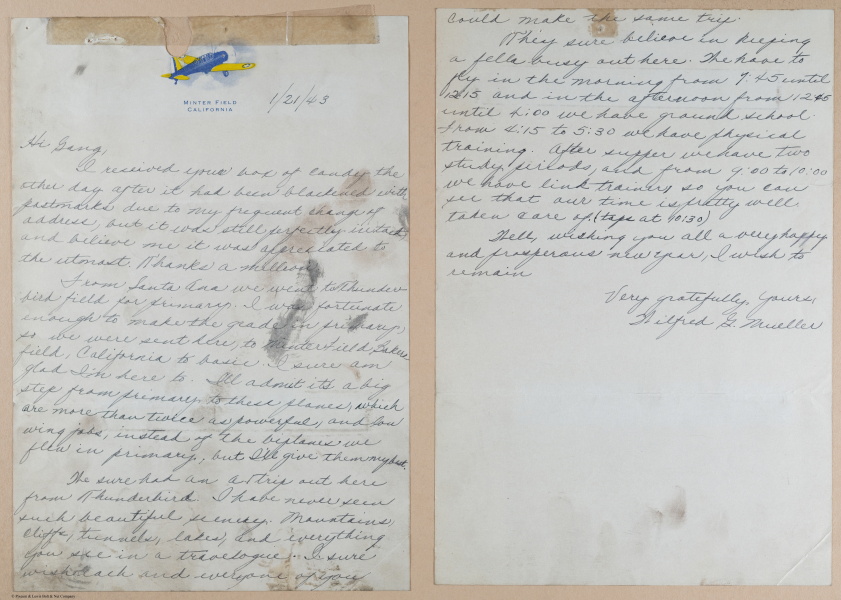 MINTER FIELD
CALIFORNIA
1/21/43
Hi Gang,
I received your box of candy the
other day after it had been blackened with
postmarks due to my frequent change of
address, but it was still perfectly intact
and believe me it was appreciated to
the utmost. Thanks a million.
From Santa Ana we went to Thunder-
bird field for primary. I was fortunate
enough to make the grade in primary,
so we were sent here, to Minter Field, Bakers
field, California to basic. I sure am
glad I'm here to. I'll admit its a big
step from primary to these planes, which
are more than twice as powerful, and low
wing jobs, instead of the biplanes we
flew in primary, but I'll give them my best.
We sure had an A-1 trip out here
from Thunderbird. I have never seen
such beautiful scenery. Mountains,
cliffs, tunnels, lakes, and everything
you see in a travelogue. I sure
wish each and everyone of you
could make the same trip.
They sure believe in keeping
a fella busy out here. We have to
fly in the morning from 7:45 until
12:15 and in the afternoon from 12:45
until 4:00 we have ground school.
From 4:15 to 5:30 we have physical
training. After supper we have two
study periods, and from 9:00 to 10:00
we have link trainer, so you can
see that our time is pretty well
taken care of. (taps at 10:30)
Well, wishing you all a very happy
and prosperous new year, I wish to
remain
Very gratefully, yours,
Wilfred G. Mueller
© Russell & Lewis Bolt & Nut Company